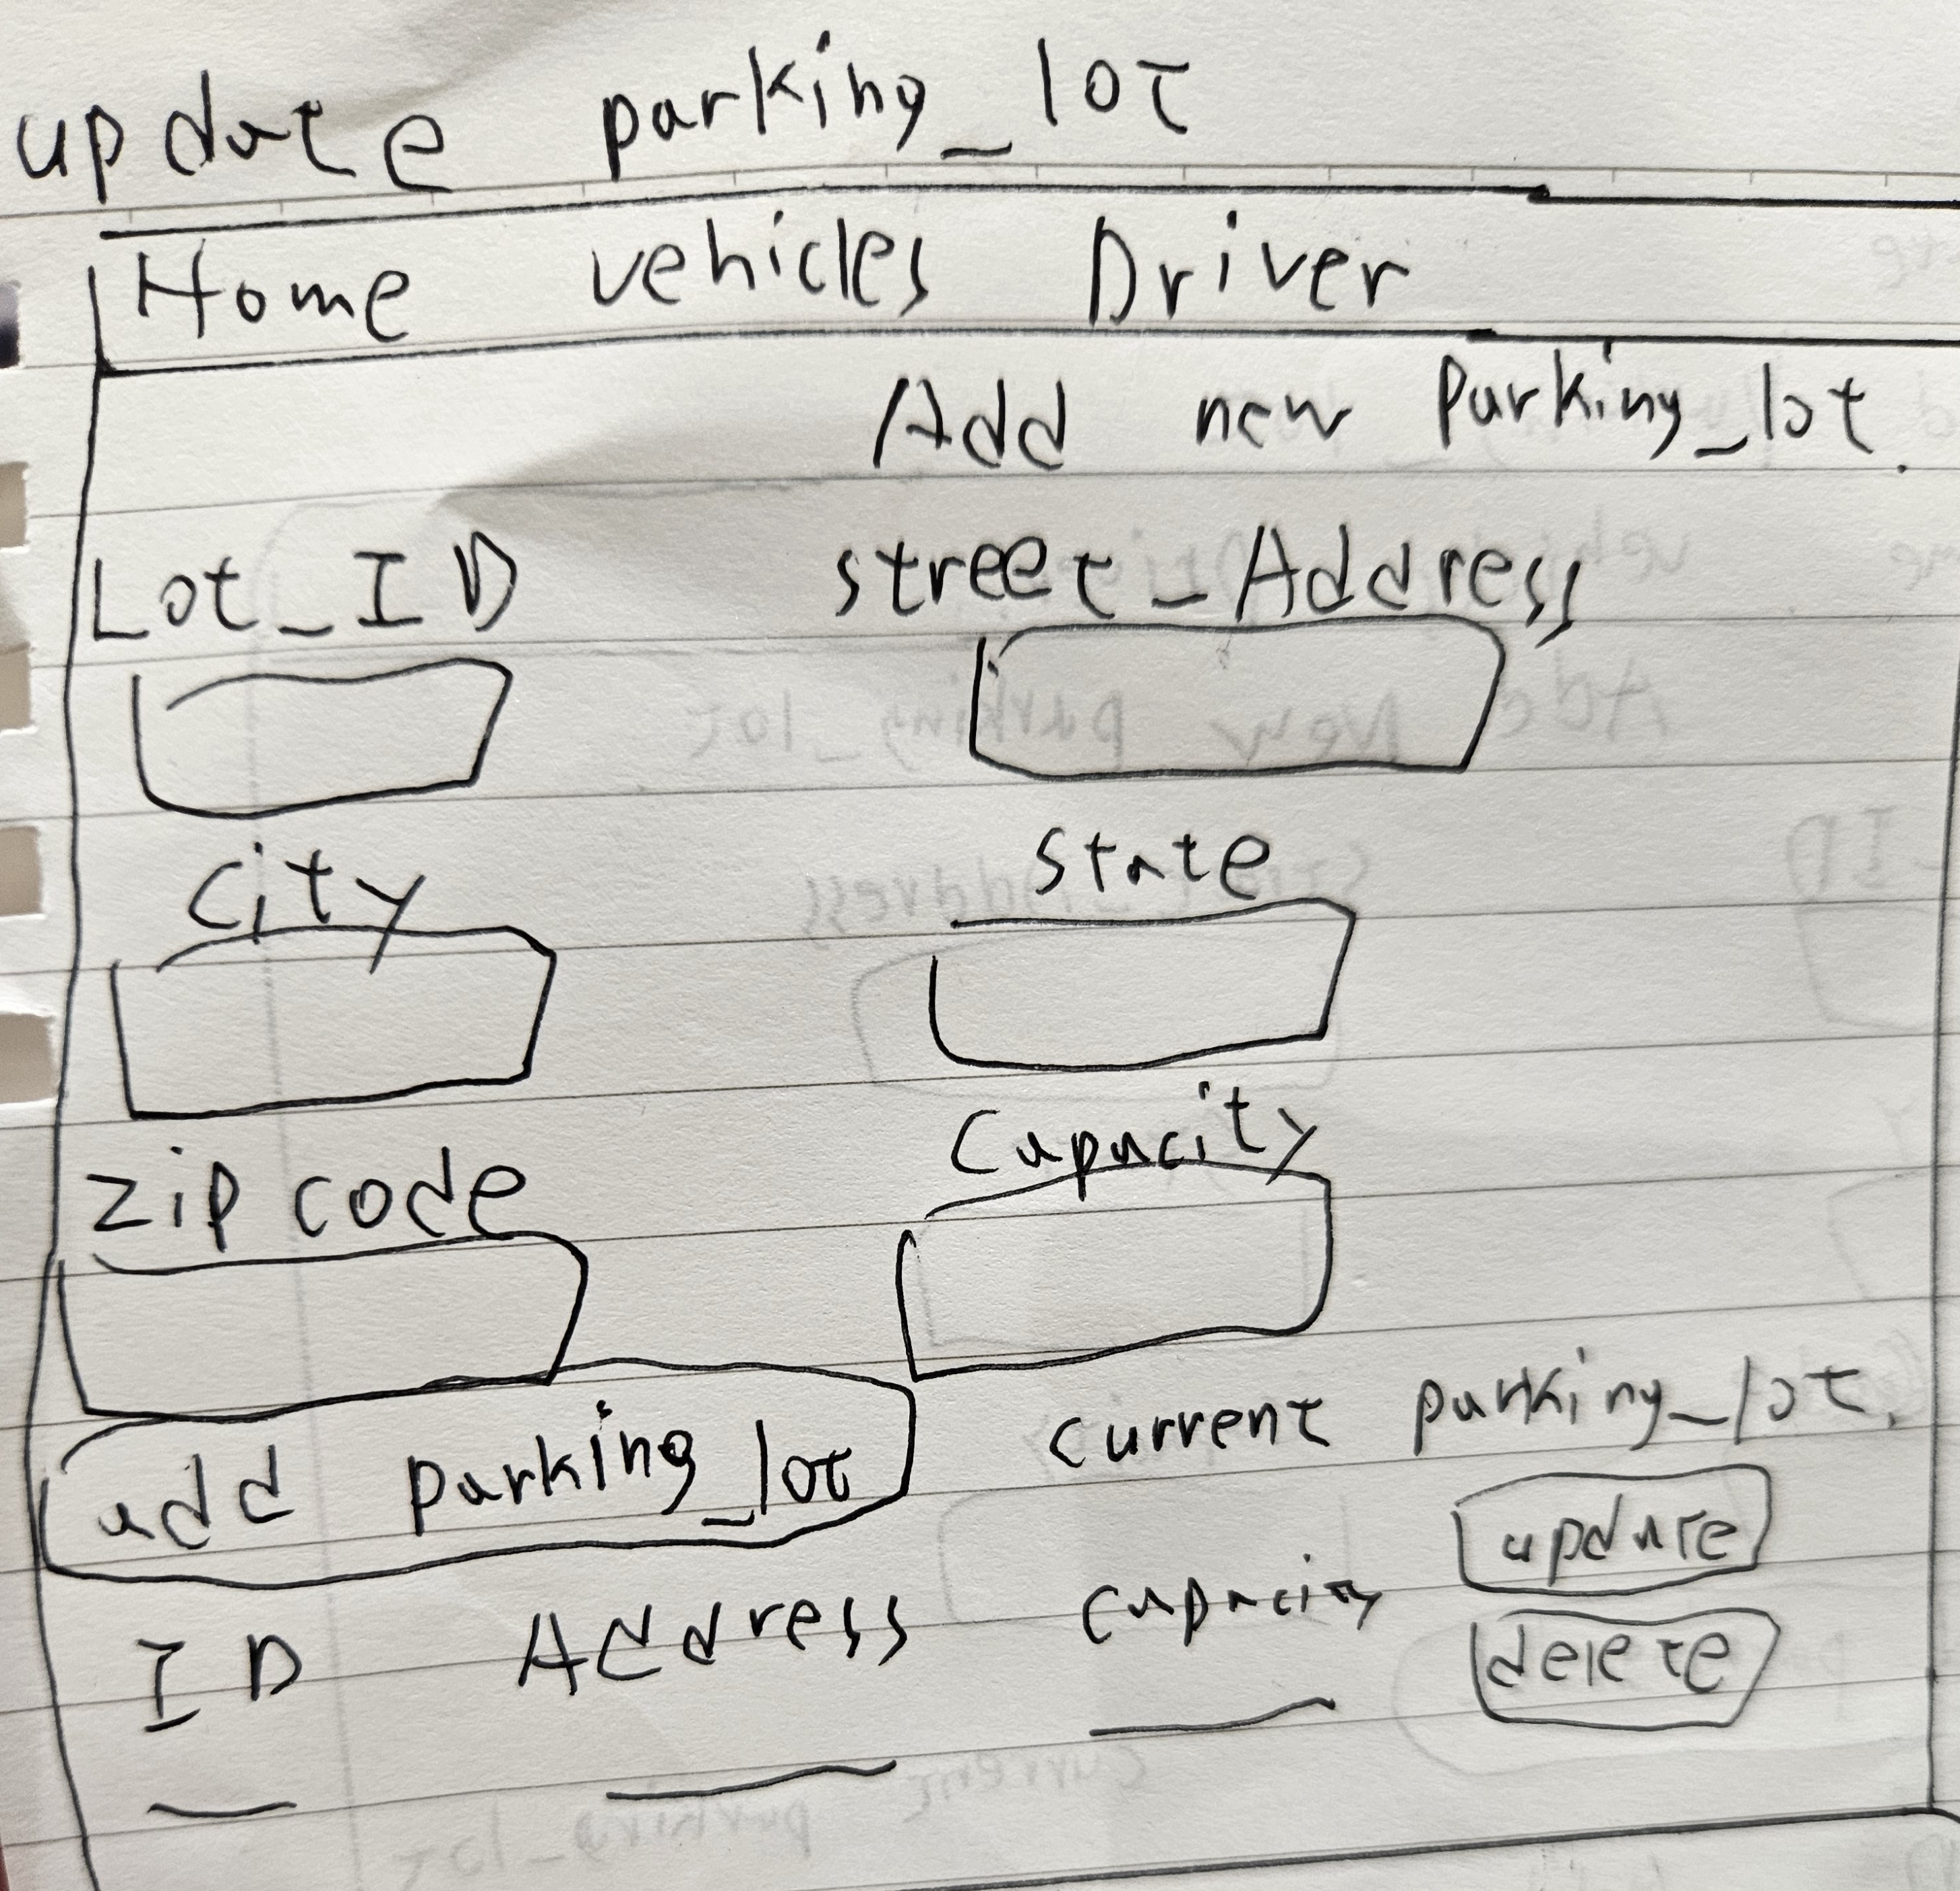 update parking_lot
Home vehicles Driver
Add new Parking_lot.
Lot_ID street_Address
city state
zip code Capacity
add parking_lot current parking_lot.
update
ID Address capacity
delete